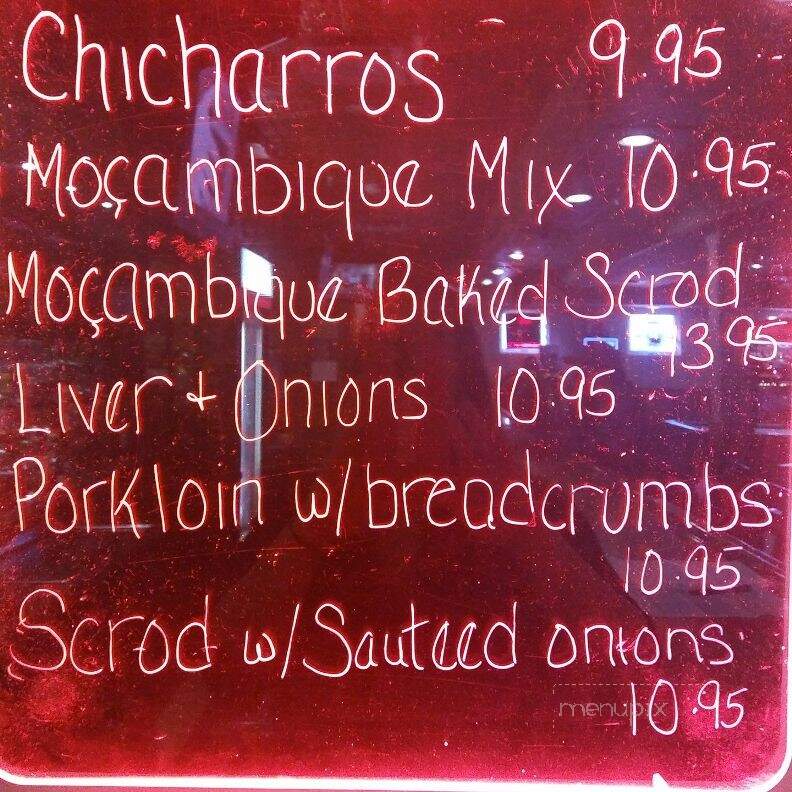 Chicharros 9.95
Moçambique Mix 10.95
Moçambique Baked Scrod
13.95
Liver + Onions 10.95
Porkloin w/breadcrumbs
10.95
Scrod w/Sauteed onions
10.95
menupix